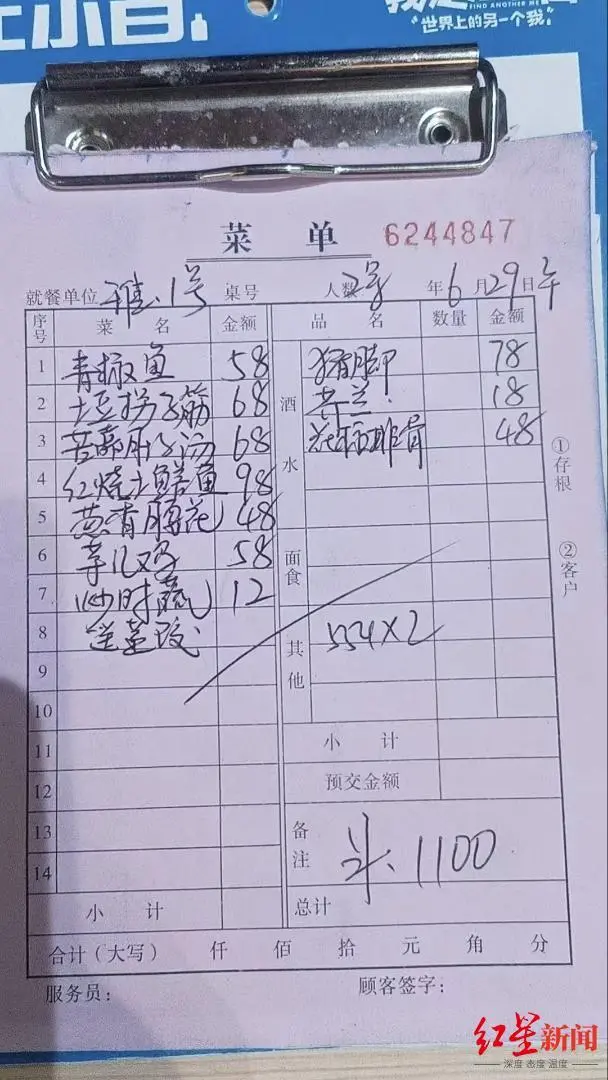 FIND ANOTHER ME
"世界上的另一个我"
菜 单 6244847
就餐单位 雅.1号 桌号 人数 年6月29日午
序号 菜 名 金额 品 名 数量 金额
1 青椒鱼 58 酒水 猪脚 78
2 土豆拐子筋 68 芥兰. 18
3 68 排骨 48
4 红烧土鳝鱼 98
5 葱香腰花 48
6 58 面食
7 炒时蔬 12
8 其他 554×2
9
10
11 小 计
12 预交金额
13 备注 1100
14
小 计 总计
合计(大写) 仟 佰 拾 元 角 分
服务员: 顾客签字:
①存根
②客户
红星新闻
深度 态度 温度